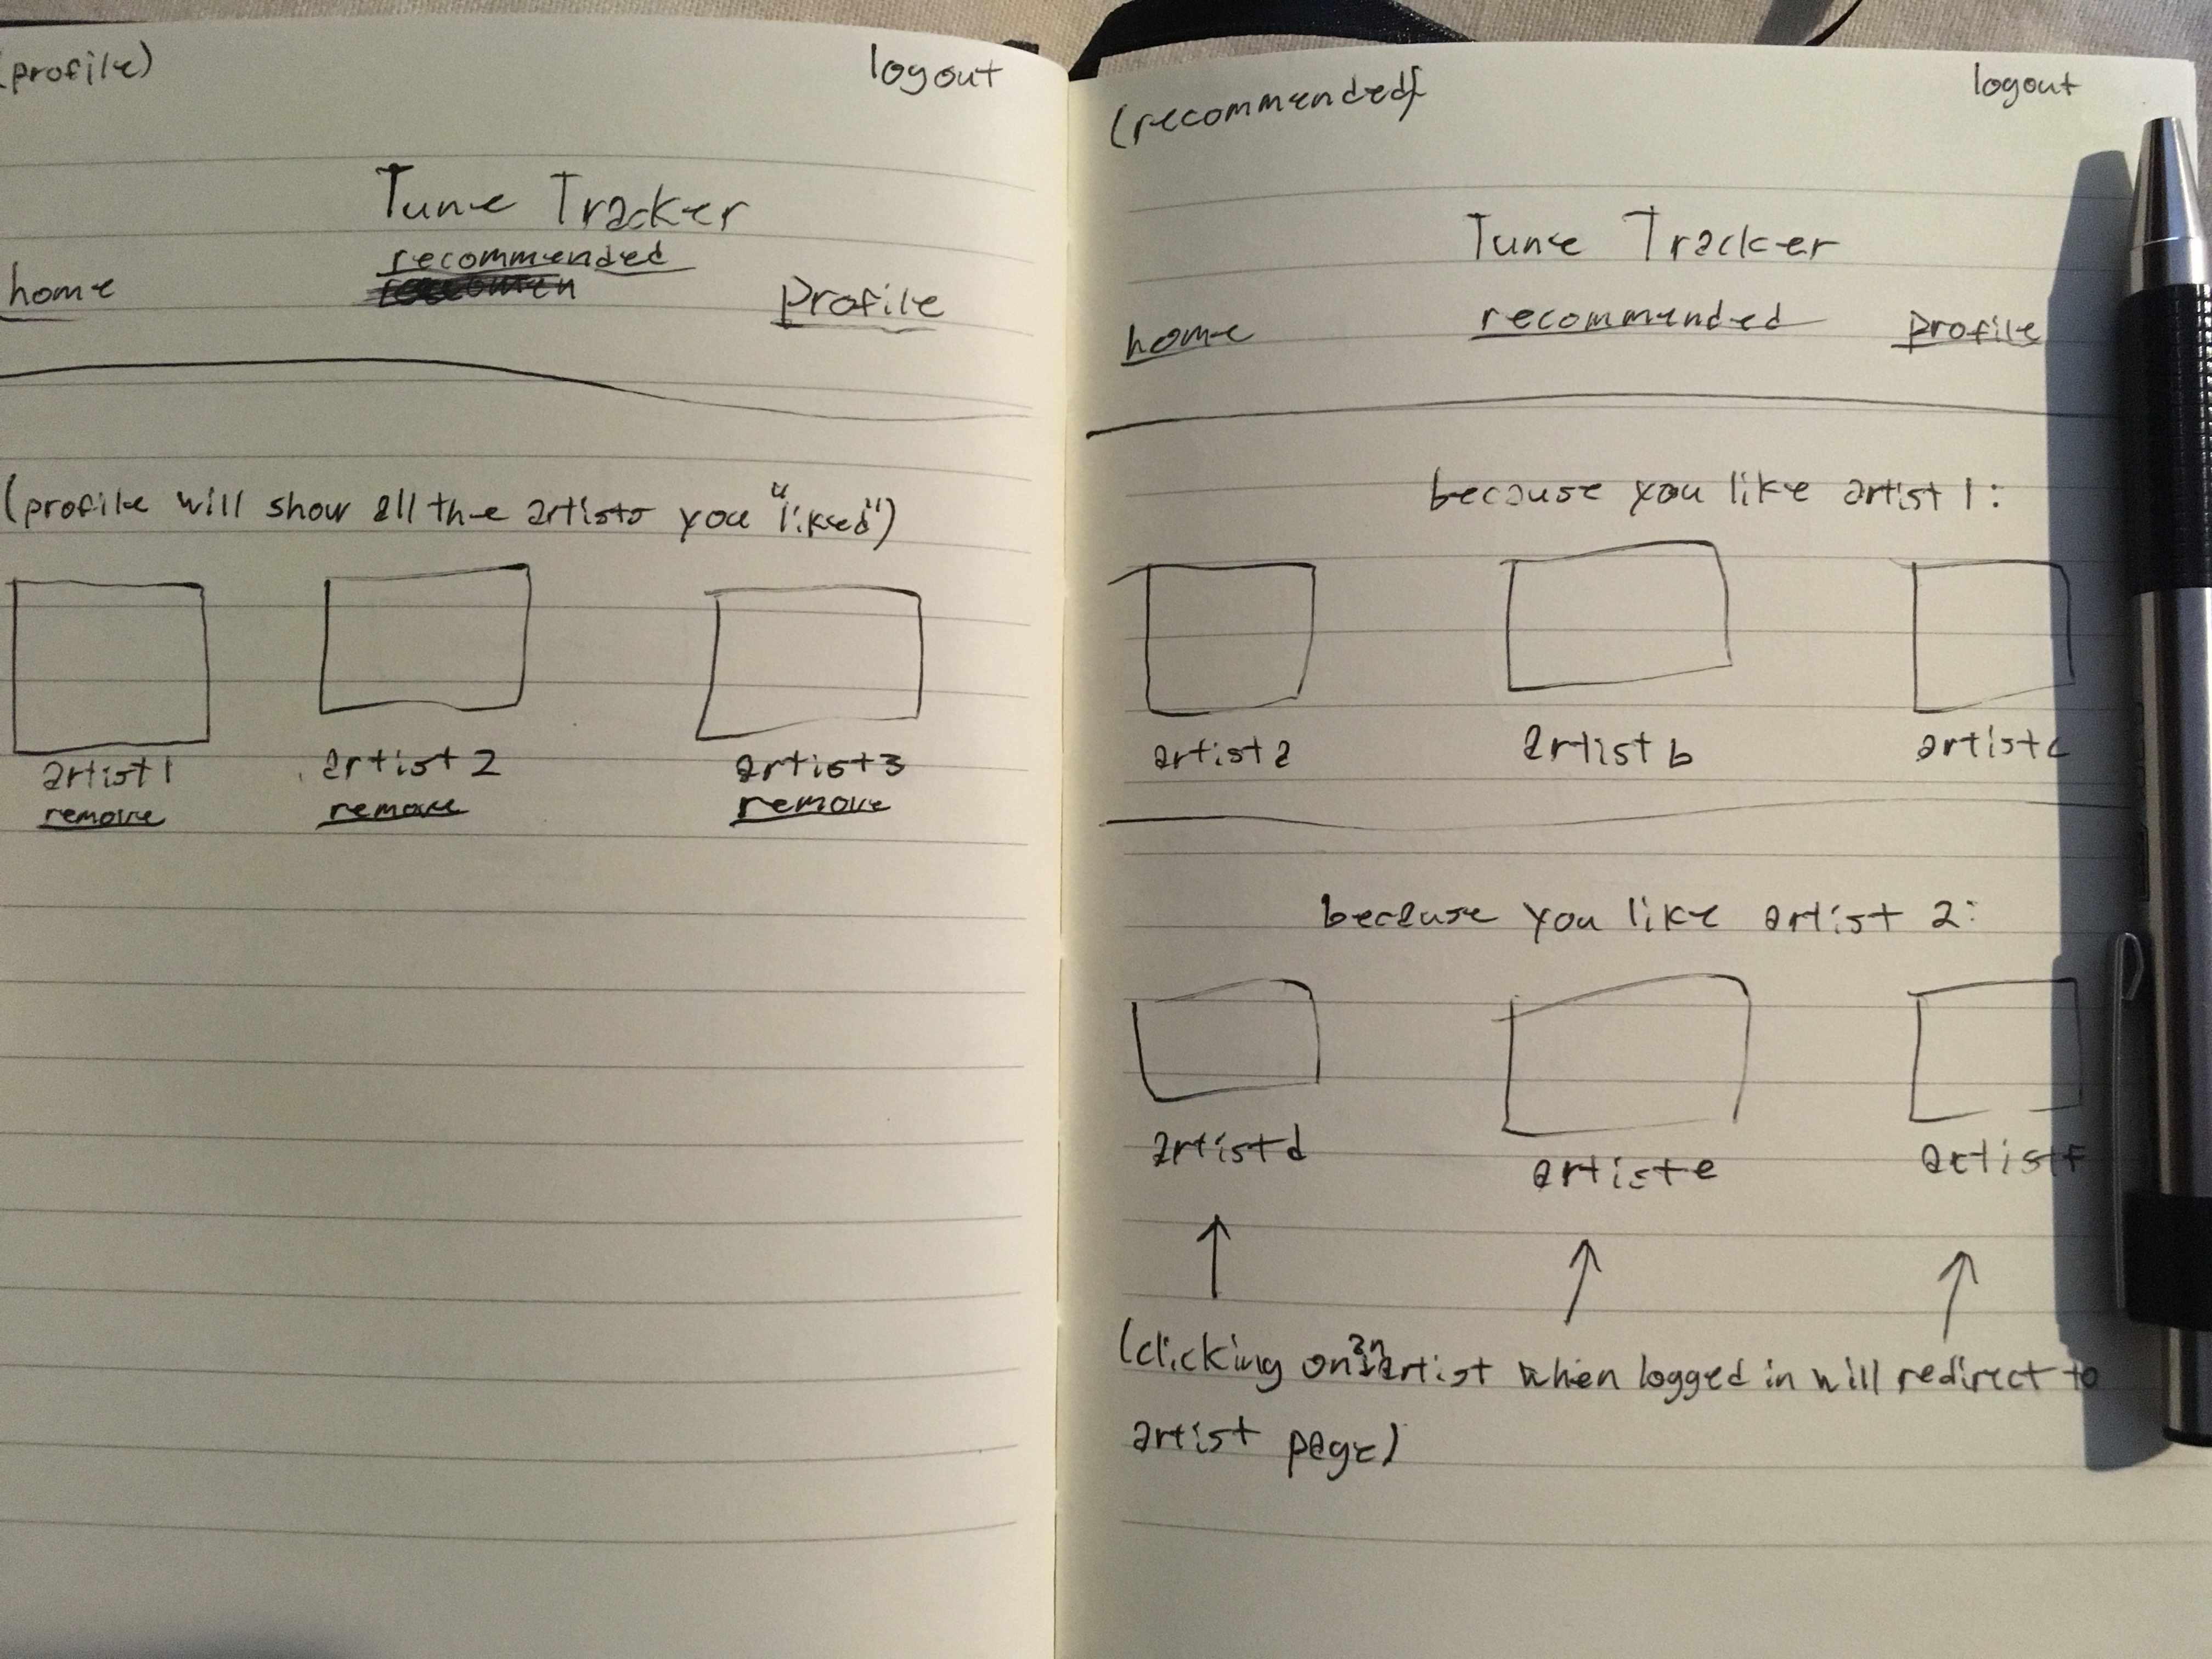 (profile)
logout
Tune Tracker
recommended
home
profile
(profile will show all the artists you "liked")
artist 1
artist 2
artist 3
remove
remove
remove
(recommended)
logout
Tune Tracker
home
recommended
profile
because you like artist 1:
artist a
artist b
artist c
because you like artist 2:
artist d
artist e
artist f
(clicking on an artist when logged in will redirect to
artist page)